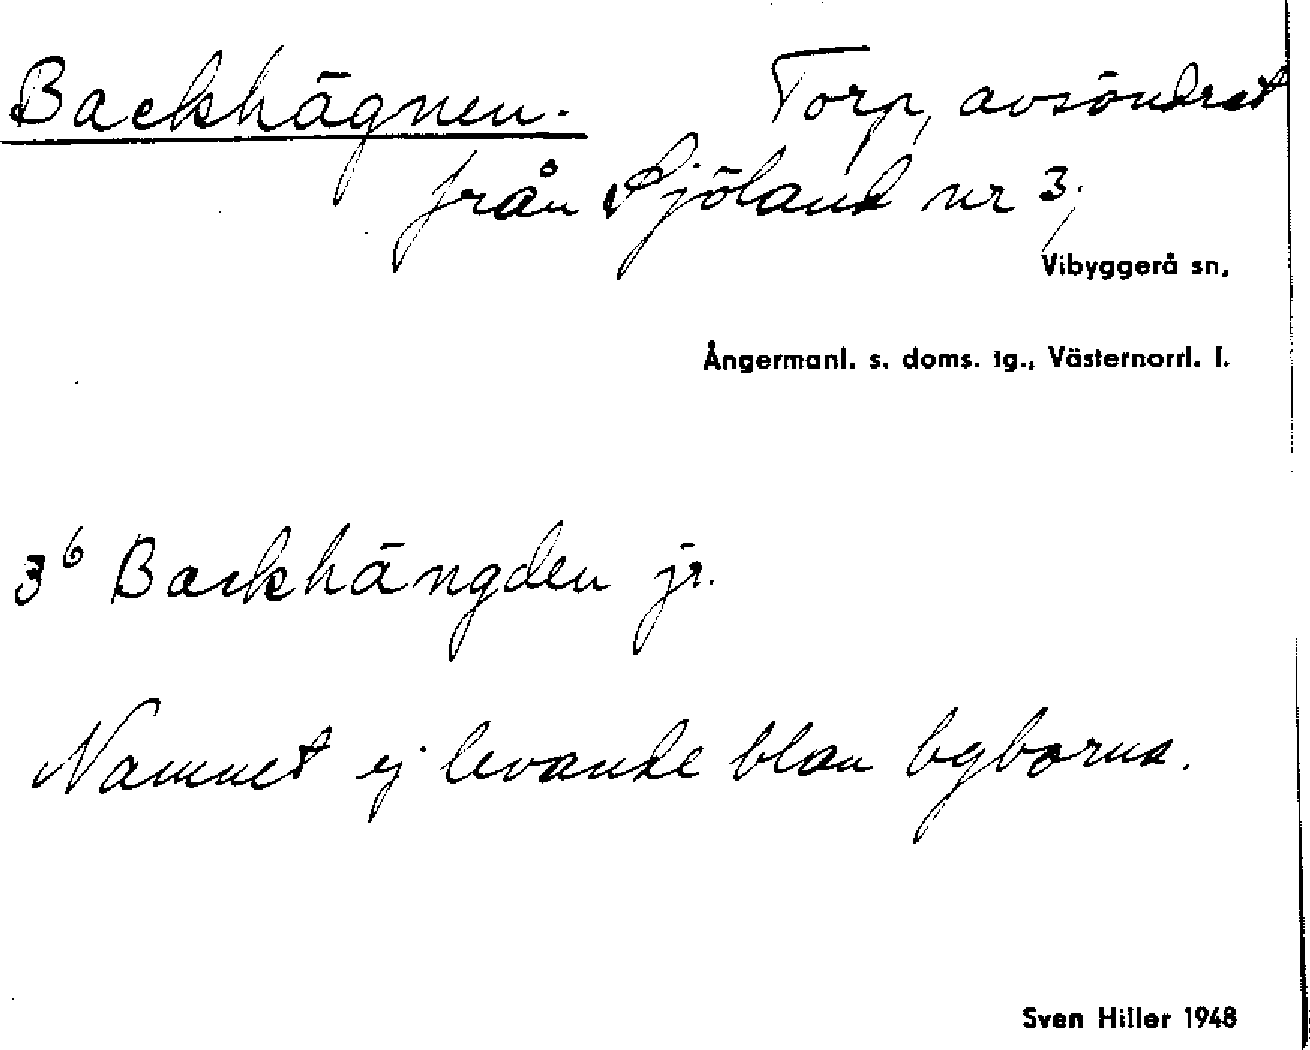 Backhägnen. Torp, avsöndrat
från Sjöland nr 3;
Vibyggerå sn,
Ångermanl. s. doms. tg., Västernorrl. l.
3⁶ Backhängden jr.
Namnet ej levande blan byborna.
Sven Hiller 1948